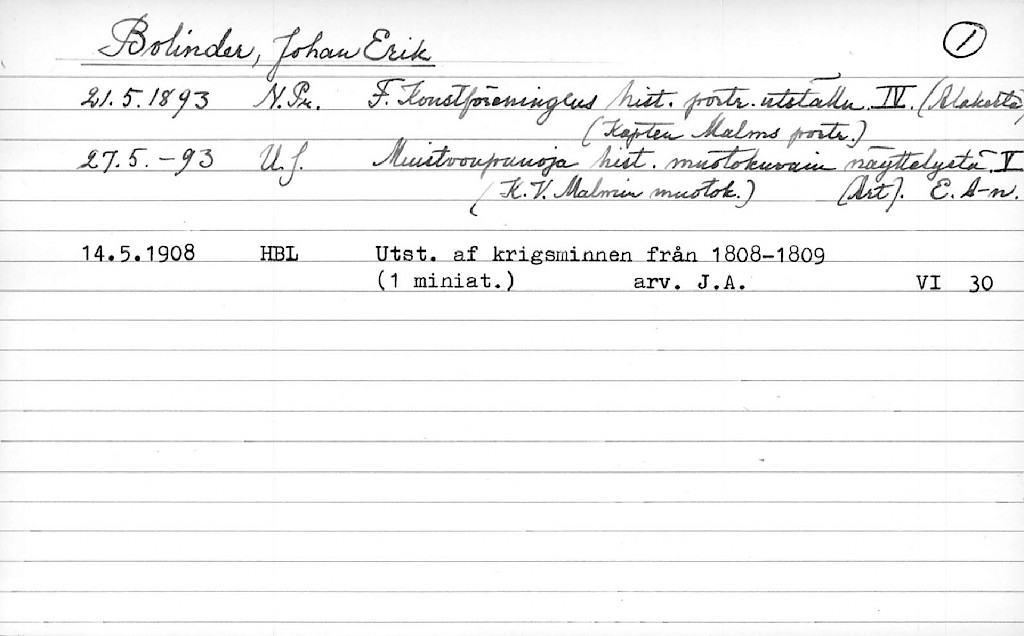 Bolinder, Johan Erik 1
21.5.1893 N.Pr. F. Konstföreningens hist. portr. utställn. IV. (Alakerta)
(Kapten Malms portr.)
27.5.-93 U.S. Muistoonpanoja hist. muotokuvain näyttelystä. V
(K.V. Malmin muotok.) (Art). E. A-n.
14.5.1908 HBL Utst. af krigsminnen från 1808-1809
(1 miniat.) arv. J.A. VI 30